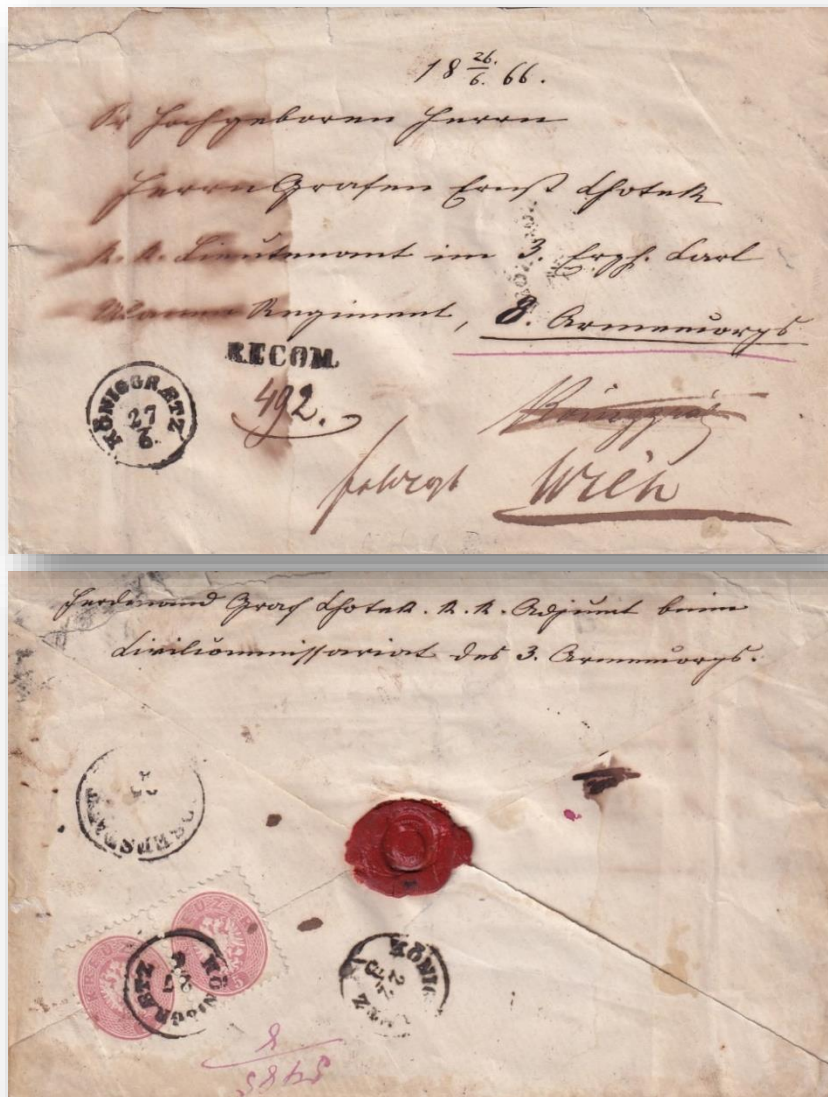 18 26./6. 66.
Sr Hochgeboren Herrn
Herrn Grafen Ernst Chotek
k. k. Lieutenant im 3. Erzh. Carl
Uhlanen Regiment, 8. Armeecorps
RECOM.
492.
KÖNIGGRÆTZ
27
6.
Königgrätz
Wien
Ferdinand Graf Chotek. k. k. Adjunct beim
Civilcommissariat des 3. Armeecorps.
KÖNIGGRÆTZ
KÖNIG